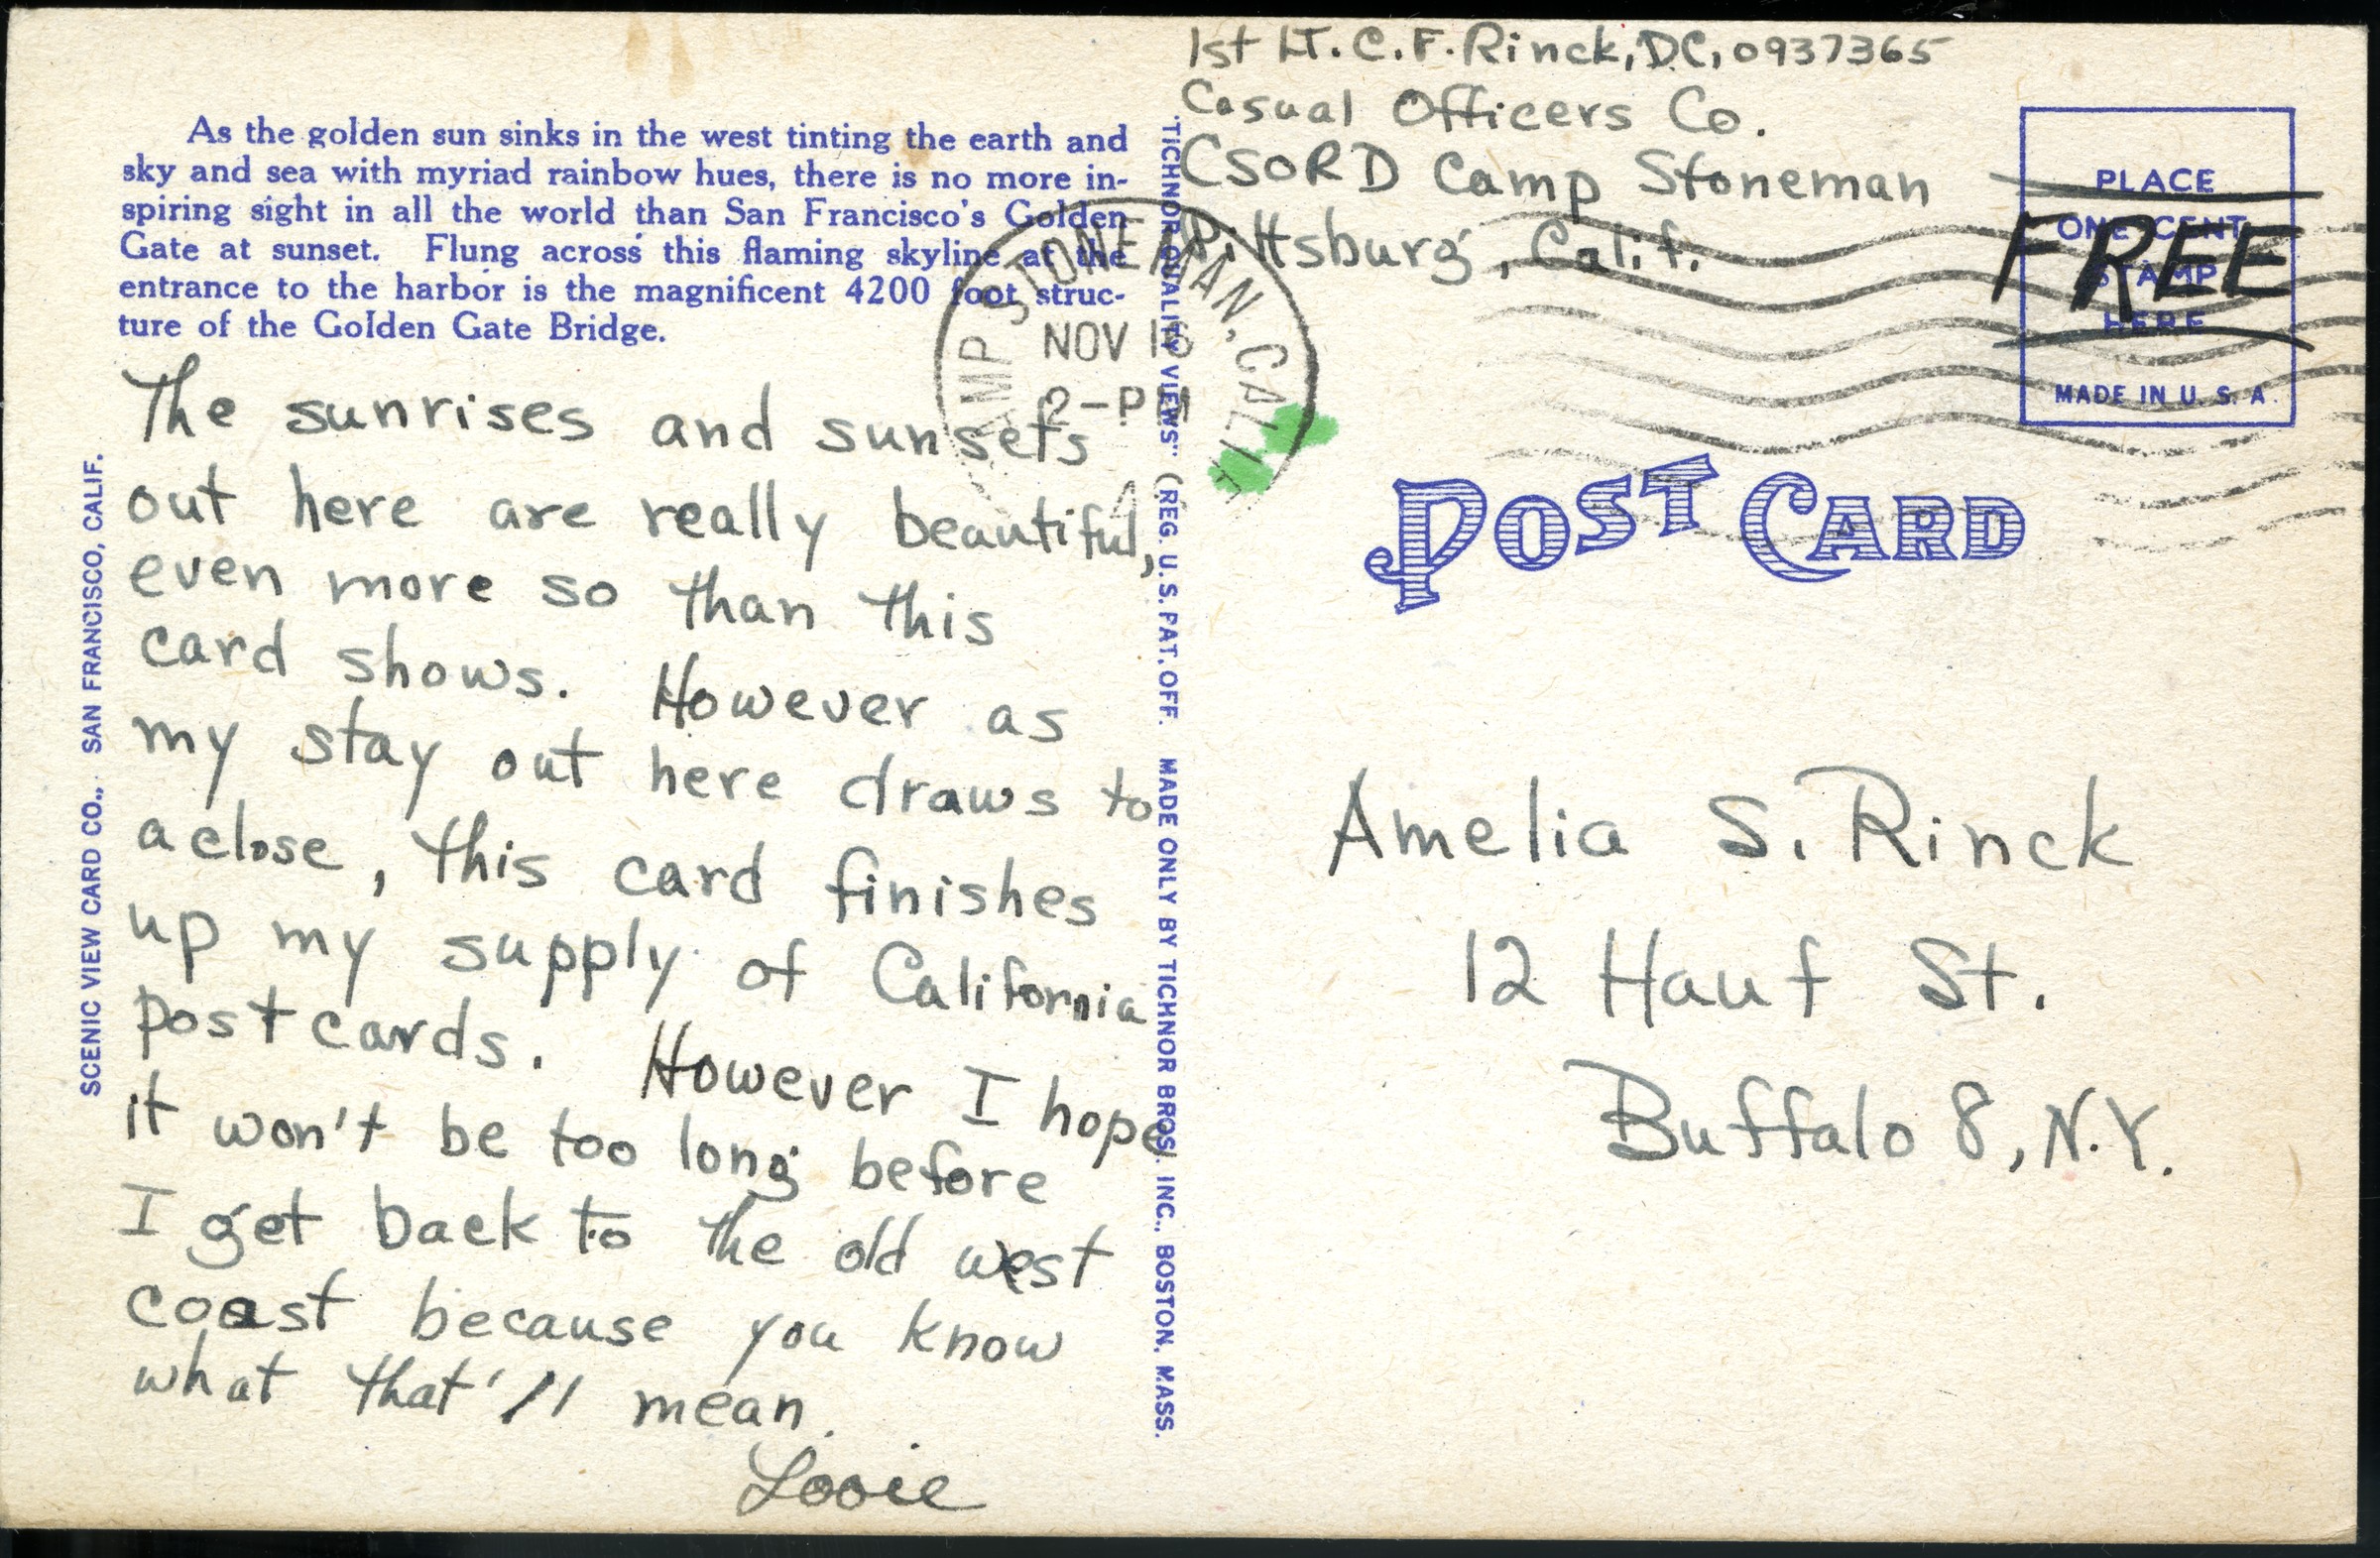 As the golden sun sinks in the west tinting the earth and
sky and sea with myriad rainbow hues, there is no more in-
spiring sight in all the world than San Francisco's Golden
Gate at sunset. Flung across this flaming skyline at the
entrance to the harbor is the magnificent 4200 foot struc-
ture of the Golden Gate Bridge.
The sunrises and sunsets
out here are really beautiful,
even more so than this
card shows. However as
my stay out here draws to
a close, this card finishes
up my supply of California
postcards. However I hope
it won't be too long before
I get back to the old west
coast because you know
what that'll mean.
Looie
SCENIC VIEW CARD CO., SAN FRANCISCO, CALIF.
"TICHNOR QUALITY VIEWS" (REG. U.S. PAT. OFF. MADE ONLY BY TICHNOR BROS. INC., BOSTON, MASS.
1st LT. C. F. Rinck, DC, 0937365
Casual Officers Co.
CSORD Camp Stoneman
Pittsburg, Calif.
CAMP STONEMAN, CALIF
NOV 16
2-PM
PLACE
ONE CENT
STAMP
HERE
MADE IN U. S. A.
FREE
POST CARD
Amelia S. Rinck
12 Hauf St.
Buffalo 8, N.Y.